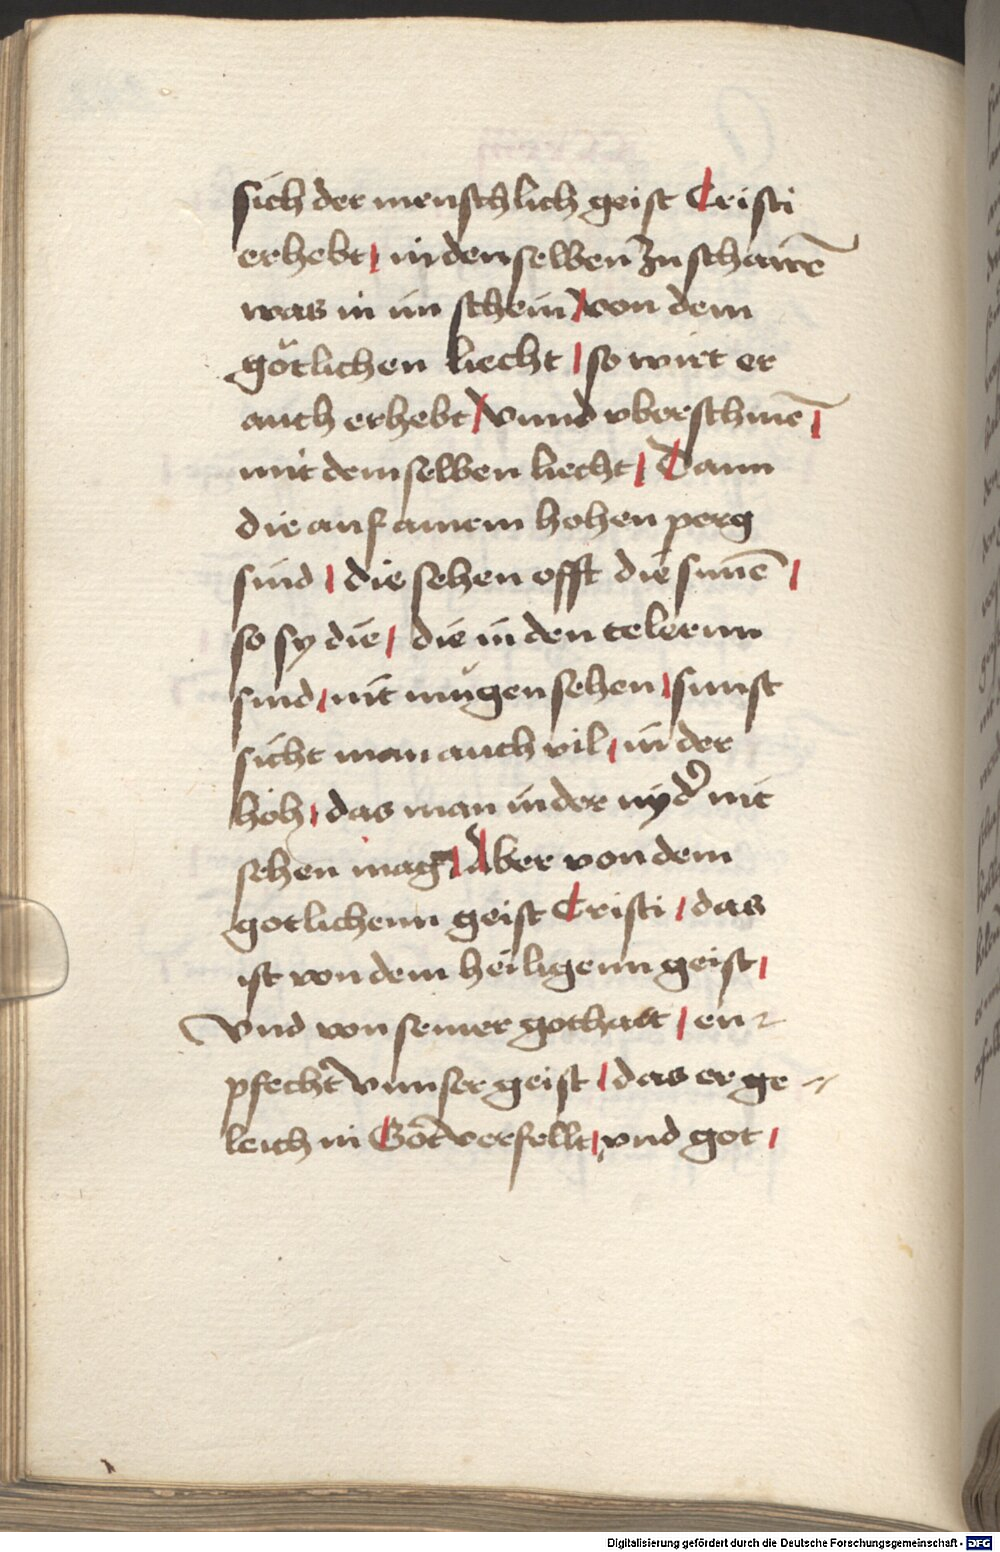 sich der menschlich geist Cristi
erhebt / in den selben zu schawē
was in im schein / von dem
götlichen liecht / so wirt er
auch erhebt / vnnd vberschinē /
mit dem selben liecht / Dann
die auf ainem hohen perg
sind / die sehen offt die sunē /
so sy die / die in den telernn
sind / nit mügen sehen / sunst
sicht man auch vil / in der
höh / das man in der nyd' nit
sehen mag / Aber von dem
gotlichenn geist Cristi / das
ist von dem heiligenn geist /
Vnd von seiner gothait / en-
pfecht vnnser geist / das er ge-
leich in Got verfellt / vnd got /
Digitalisierung gefördert durch die Deutsche Forschungsgemeinschaft - DFG